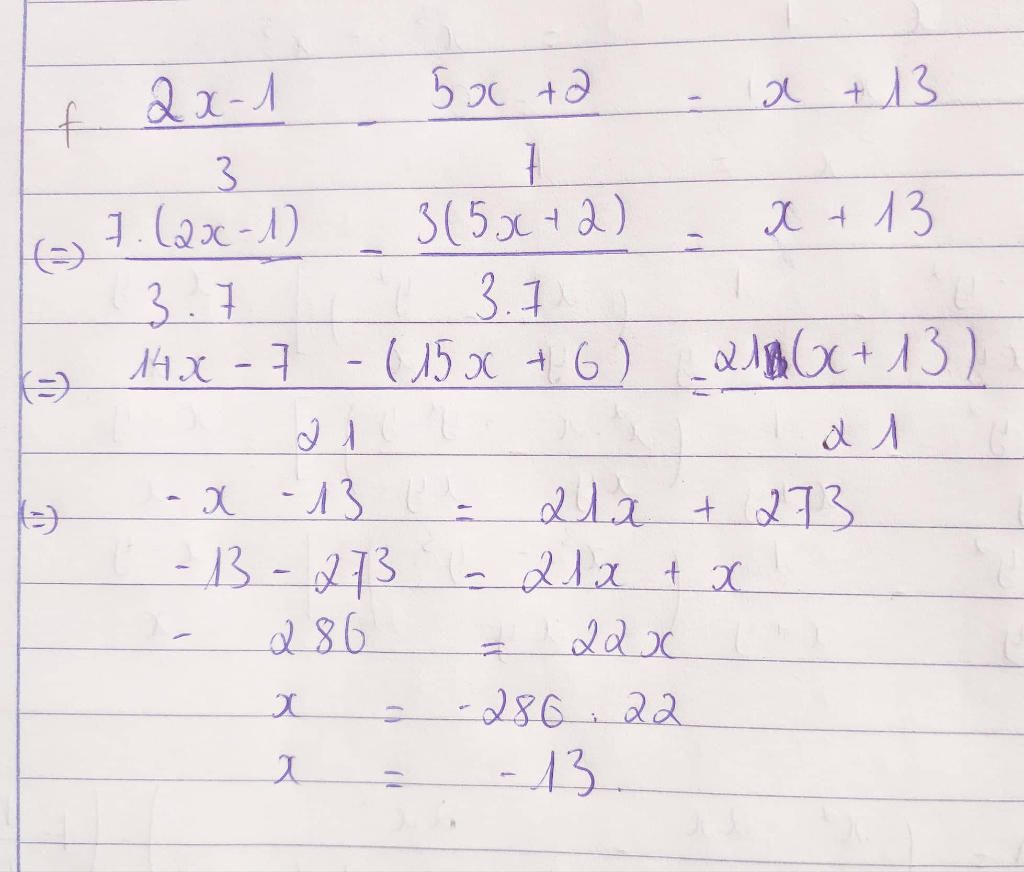 f (2x-1)/3 - (5x+2)/7 = x + 13
(=) (7.(2x-1))/(3.7) - (3(5x+2))/(3.7) = x + 13
(=) (14x - 7 - (15x + 6))/21 = (21(x + 13))/21
(=) - x - 13 = 21x + 273
- 13 - 273 = 21x + x
- 286 = 22x
x = -286 : 22
x = - 13.